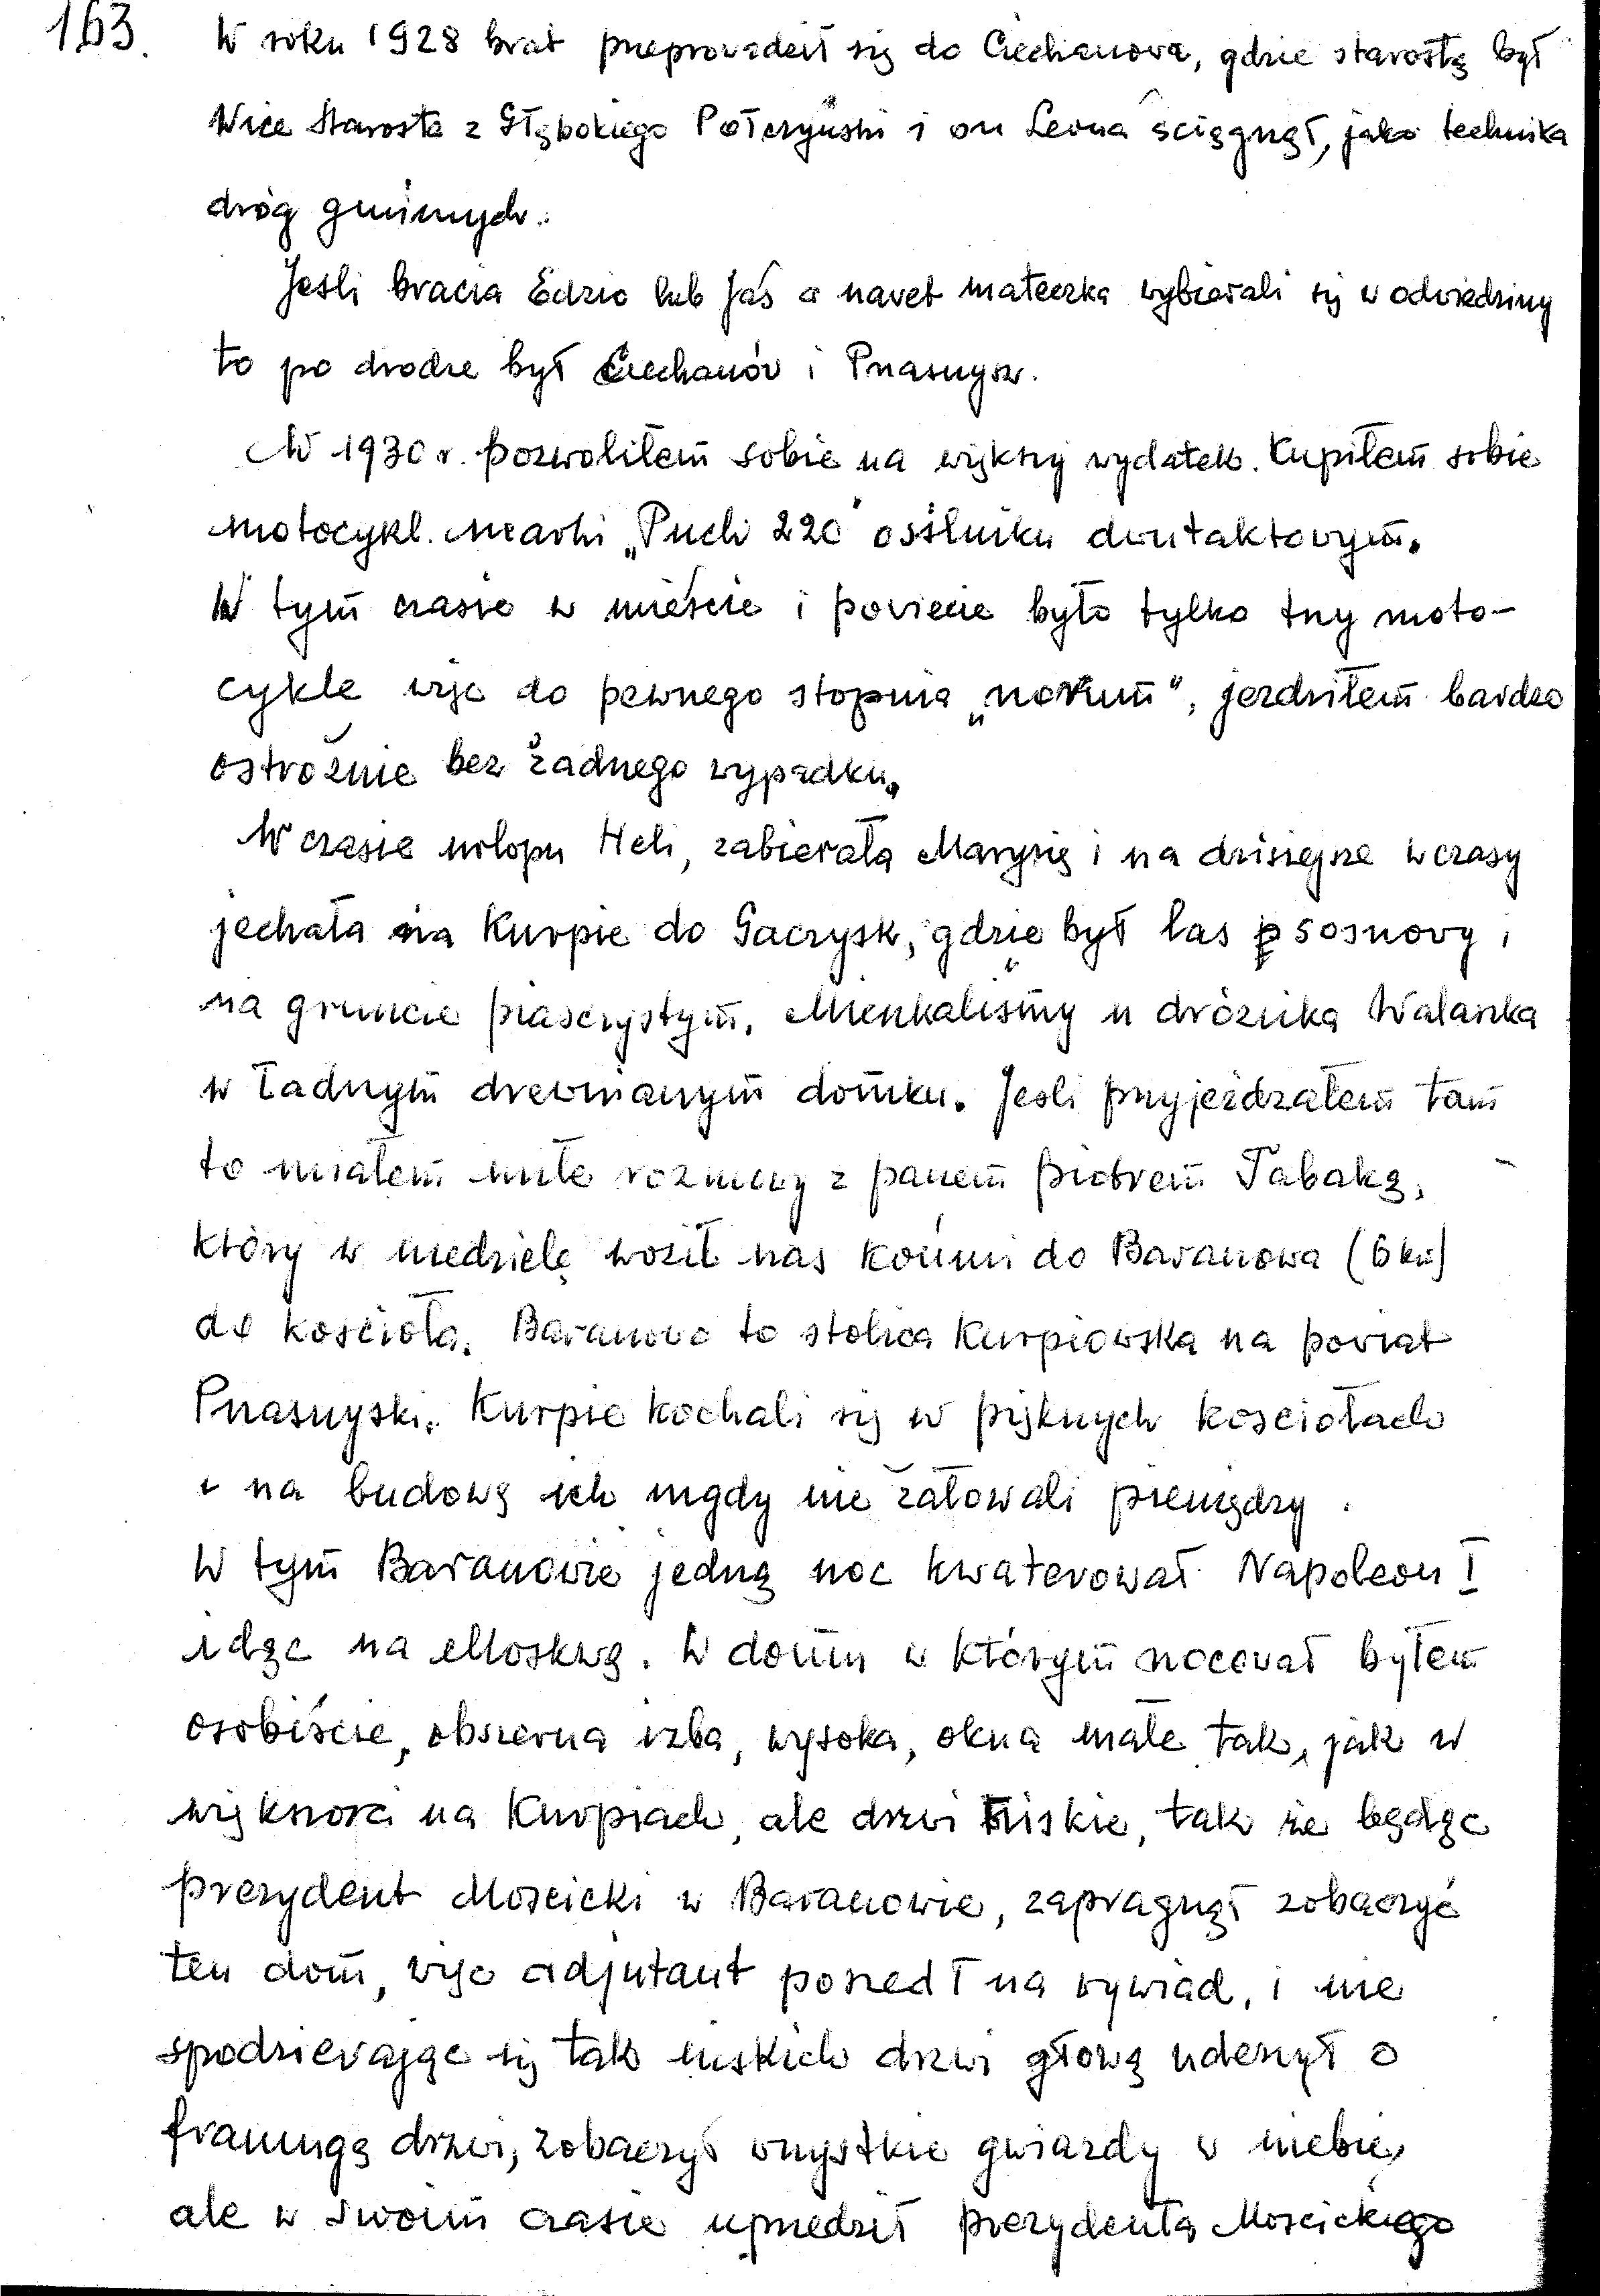 163.
W roku 1928 brat przeprowadził się do Ciechanowa, gdzie starostą był
Wice Starosta z Głębokiego Połczyński i on Leona ściągnął, jako technika
dróg gminnych.
Jeśli bracia Edzio lub Jaś a nawet mateczka wybierali się w odwiedziny
to po drodze był Ciechanów i Przasnysz.
W 1930 r. pozwoliłem sobie na większy wydatek. Kupiłem sobie
motocykl. marki „Puch 220" o silniku dwutaktowym.
W tym czasie w mieście i powiecie było tylko trzy moto-
cykle więc do pewnego stopnia „novum", jezdziłem bardzo
ostrożnie bez żadnego wypadku.
W czasie urlopu Heli, zabierała Marysię i na dzisiejsze wczasy
jechała na Kurpie do Gaczysk, gdzie był las sosnowy i
na gruncie piasczystym. Mieszkaliśmy u dróżnika Walaszka
w ładnym drewnianym domku. Jeśli przyjeżdzałem tam
to miałem miłe rozmowy z panem Piotrem Tabaką,
który w niedzielę woził nas końmi do Baranowa (6 km)
do kościoła. Baranowo to stolica Kurpiowska na powiat
Przasnyski. Kurpie kochali się w pięknych kościołach
i na budowę ich nigdy nie żałowali pieniędzy.
W tym Baranowie jedną noc kwaterował Napoleon I
idąc na Moskwę. W domu w którym nocował byłem
osobiście, obszerna izba, wysoka, okna małe tak, jak w
większości na Kurpiach, ale drzwi niskie, tak że będąc
prezydent Moscicki w Baranowie, zapragnął zobaczyć
ten dom, więc adjutant poszedł na wywiad, i nie
spodziewając się tak niskich drzwi głową uderzył o
framugę drzwi, zobaczył wszystkie gwiazdy w niebie,
ale w swoim czasie uprzedził prezydenta Moscickiego